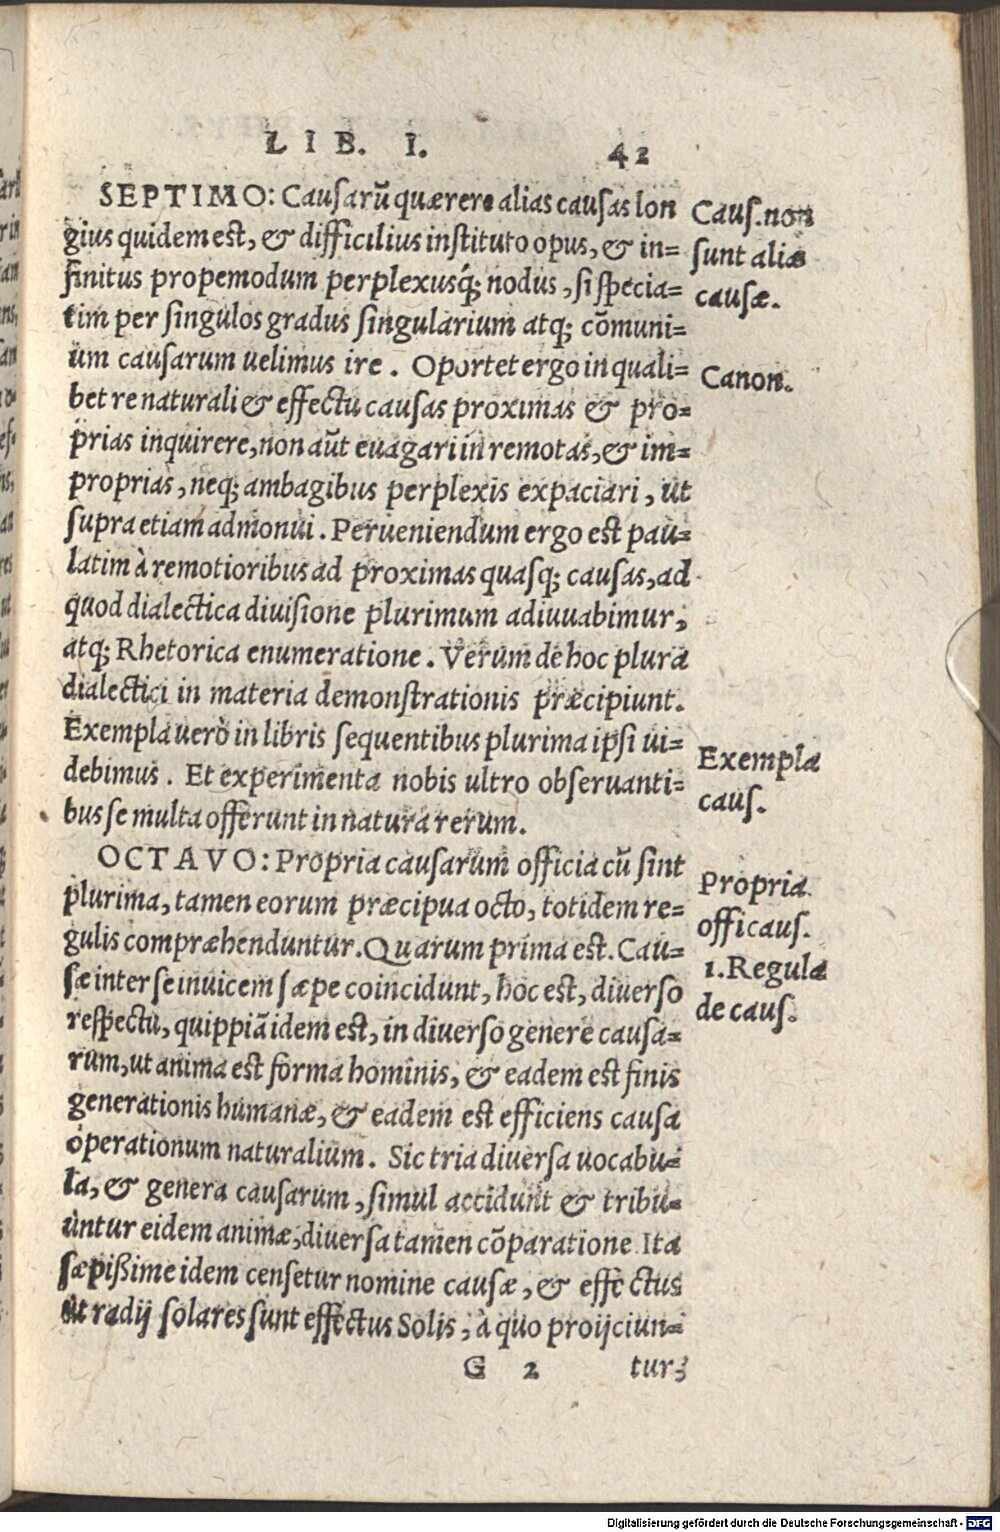 LIB. I. 42
SEPTIMO: Causarũ quærere alias causas lon
gius quidem est, & difficilius instituto opus, & in=
finitus propemodum perplexusq́; nodus, si specia=
tim per singulos gradus singularium atq; cõmuni=
um causarum uelimus ire. Oportet ergo in quali=
bet re naturali & effectu causas proximas & pro=
prias inquirere, non aũt euagari in remotas, & im=
proprias, neq; ambagibus perplexis expaciari, ut
supra etiam admonui. Perueniendum ergo est pau=
latim à remotioribus ad proximas quasq; causas, ad
quod dialectica diuisione plurimum adiuuabimur,
atq; Rhetorica enumeratione. Verum de hoc plura
dialectici in materia demonstrationis præcipiunt.
Exempla uerò in libris sequentibus plurima ipsi ui=
debimus. Et experimenta nobis ultro obseruanti=
bus se multa offerunt in natura rerum.
OCTAVO: Propria causarum officia cũ sint
plurima, tamen eorum præcipua octo, totidem re=
gulis compræhenduntur. Quarum prima est. Cau=
sæ inter se inuicem sæpe coincidunt, hoc est, diuerso
respectu, quippiã idem est, in diuerso genere causa=
rum, ut anima est forma hominis, & eadem est finis
generationis humanæ, & eadem est efficiens causa
operationum naturalium. Sic tria diuersa uocabu=
la, & genera causarum, simul accidunt & tribu=
untur eidem animæ, diuersa tamen cõparatione Ita
sæpißime idem censetur nomine causæ, & effectus
ut radij solares sunt effectus Solis, à quo proijciun=
G 2 tur;
Caus. non
sunt aliæ
causæ.
Canon.
Exempla
caus.
Propria
offi caus.
1. Regula
de caus.
Digitalisierung gefördert durch die Deutsche Forschungsgemeinschaft - DFG